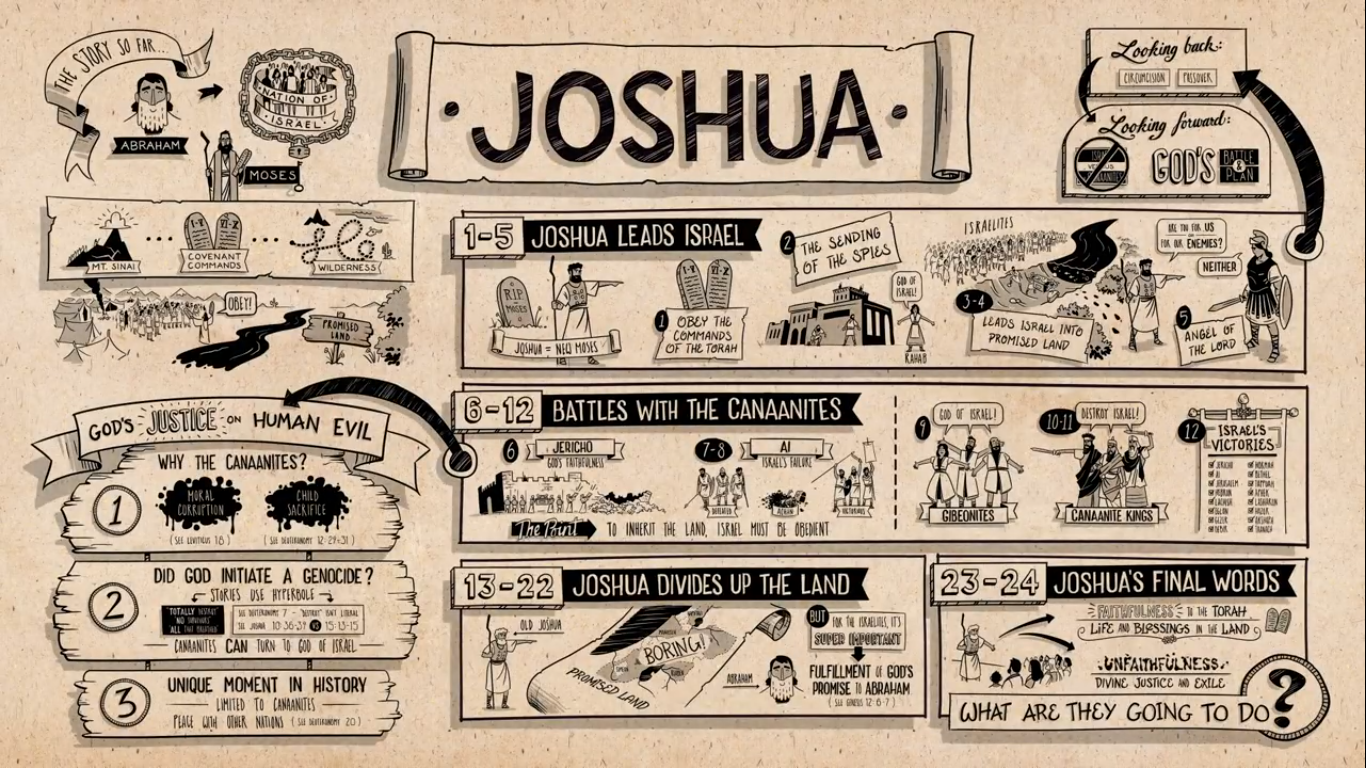 THE STORY SO FAR...
ABRAHAM
NATION OF
ISRAEL
MOSES
MT. SINAI
I-V VI-X
COVENANT
COMMANDS
WILDERNESS
OBEY!
PROMISED
LAND
JOSHUA
Looking back:
CIRCUMCISION PASSOVER
Looking forward:
GOD'S BATTLE
& PLAN
1-5 JOSHUA LEADS ISRAEL
R.I.P.
MOSES
JOSHUA = NEW MOSES
I-V VI-X
1 OBEY THE
COMMANDS
OF THE TORAH
2 THE SENDING
OF THE SPIES
GOD OF
ISRAEL!
RAHAB
ISRAELITES
3-4
LEADS ISRAEL INTO
PROMISED LAND
ARE YOU FOR US
OR
FOR OUR ENEMIES?
NEITHER
5 ANGEL OF
THE LORD
GOD'S JUSTICE ON HUMAN EVIL
WHY THE CANAANITES?
1
MORAL
CORRUPTION
CHILD
SACRIFICE
(SEE LEVITICUS 18)
(SEE DEUTERONOMY 12:29-31)
2
DID GOD INITIATE A GENOCIDE?
STORIES USE HYPERBOLE
"TOTALLY DESTROY"
"NO SURVIVORS"
"ALL THAT BREATHED"
SEE DEUTERONOMY 7 - "DESTROY" ISN'T LITERAL
SEE JOSHUA 10:36-39 VS 15:13-15
CANAANITES CAN TURN TO GOD OF ISRAEL
3
UNIQUE MOMENT IN HISTORY
LIMITED TO CANAANITES
PEACE WITH OTHER NATIONS (SEE DEUTERONOMY 20)
6-12 BATTLES WITH THE CANAANITES
6 JERICHO
GOD'S FAITHFULNESS
7-8 AI
ISRAEL'S FAILURE
DEFEATED
ACHAN
VICTORIOUS
The Point TO INHERIT THE LAND, ISRAEL MUST BE OBEDIENT
9 GOD OF ISRAEL!
GIBEONITES
10-11 DESTROY ISRAEL!
CANAANITE KINGS
12 ISRAEL'S
VICTORIES
JERICHO
AI
JERUSALEM
HEBRON
LACHISH
EGLON
GEZER
DEBIR
HORMAH
BETHEL
TAPPUAH
APHEK
LASHARON
HAZOR
TAANACH
13-22 JOSHUA DIVIDES UP THE LAND
OLD JOSHUA
BORING!
PROMISED LAND
BUT FOR THE ISRAELITES, IT'S
SUPER IMPORTANT
ABRAHAM
FULFILLMENT OF GOD'S
PROMISE TO ABRAHAM
(SEE GENESIS 12:6-7)
23-24 JOSHUA'S FINAL WORDS
FAITHFULNESS TO THE TORAH
LIFE AND BLESSINGS IN THE LAND
UNFAITHFULNESS
DIVINE JUSTICE AND EXILE
WHAT ARE THEY GOING TO DO?